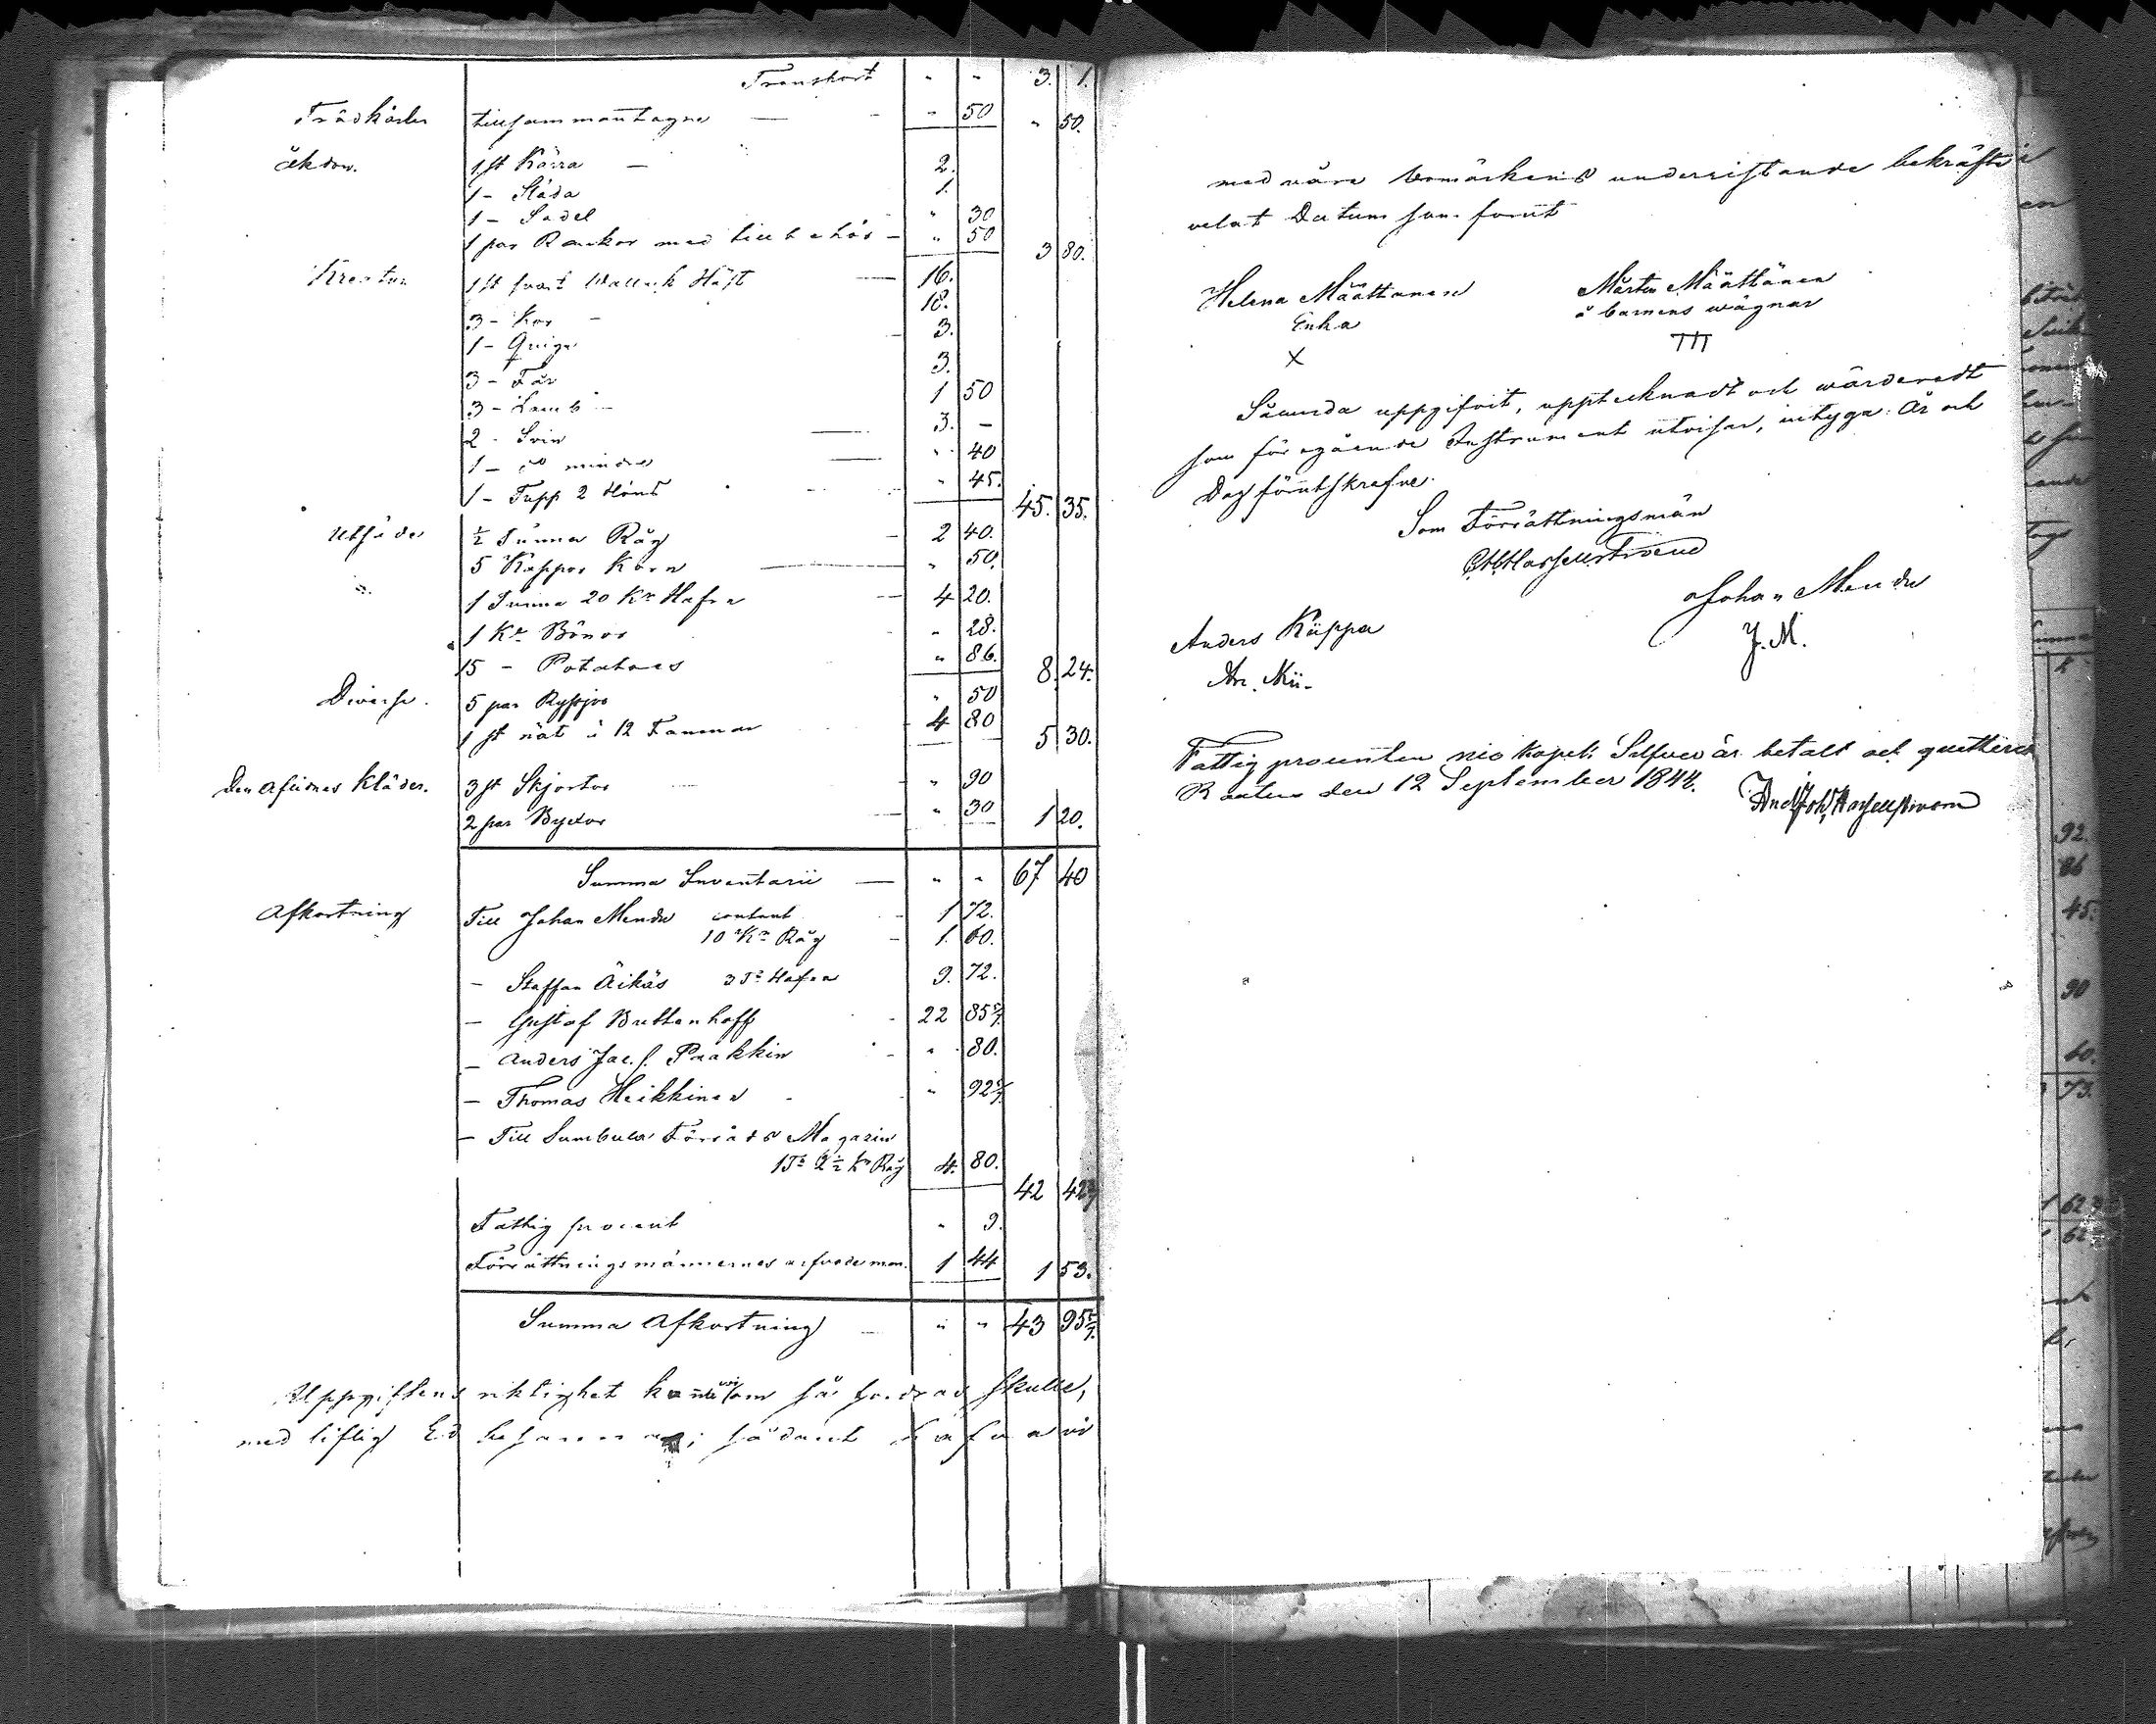 Transport " " 3. 1.
Trädkärler tillsammantagne — " 50 " 50.
åkdon. 1 st Kärra — 2.
1 - Släda 1.
1 - Sadel " 30
1 par Rankor med tillbehör — " 50 3 80.
Kreatur 1 st svart Wallack Häst — 16.
3 - Kor — 18.
1 - Quiga — 3.
3 - Får 3.
3 - Lamb — 1 50
2 - Svin — 3. —
1 - do mindre — " 40
1 - Tupp 2 Höns — " 45. 45. 35.
Utsäde ½ Tunna Råg — 2 40.
5 Kappor Korn — " 50.
1 Tunna 20 Kr Hafra — 4 20.
1 Kr Bönor - " 28.
15 - Potatoes " 86. 8. 24.
Diverse. 5 par Ryssjor " 50
1 st nät à 12 Famnar - 4 80 5 30.
Den Aflidnes Kläder. 3 st Skjortor — " 90
2 par Byxor — " 30 1 20.
Summa Inventarii — " " 67 40
Afkortning Till Johan Mendu contant - 1 72.
10 Kr Råg - 1. 60.
— Staffan Äikäs 3 Tr Hafra 9. 72.
— Gustaf Buttenhoff - 22 85 5/7.
— Anders Jac. s. Paakkin - " 80.
— Thomas Heikkinen - "
— Till Sumbula Förråds Magazin
1 Tr 2½ Kr Råg 4. 80.
42
Fattig procent " 9.
Förrättningsmännernes arfvode 1 44 1 53.
Summa Afkortning — " " 43 95 5/7.
Uppgiftens riktighet kunne wi om så fordras skulle,
med liflig Ed besanna; sådant hafva wi
med våra bomärkens underristande bekräfta
velat Datum som förut
Helena Määttänen Mårten Määttänen
Enka å barnens wägnar
X TTT
Sålunda uppgifvit, upptecknadt och wärderadt
som föregående Instrument utvisar, intyga: År och
Dag förutskrefne.
Som Förrättningsmän
Hasselström
Johan Mendu
Anders Käppa J. M.
An. Kii-
Fattig procenten nio kopek Silfver är betalt och quitteras
Rautus den 12 September 1844. And Joh, Hasselström